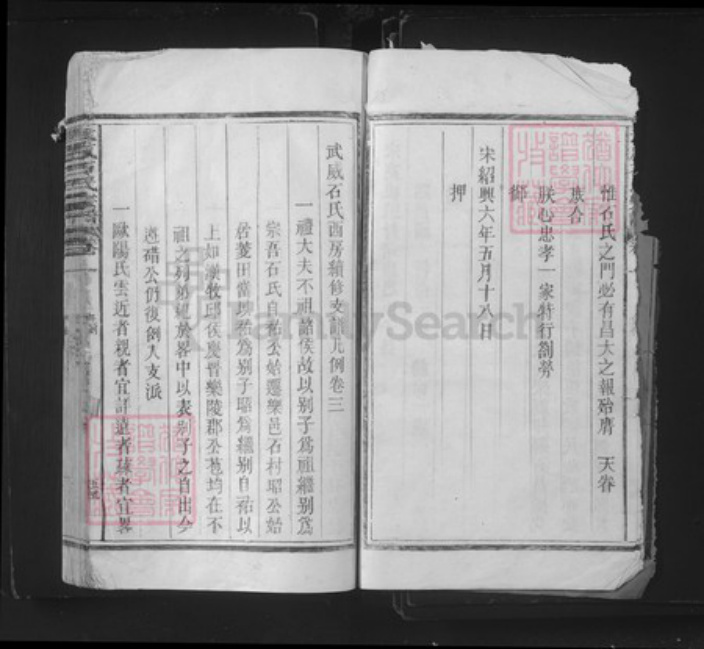 惟石氏之門必有昌大之報殆膺　天眷
族合
朕心忠孝一家特行劄勞
御
宋紹興六年五月十八日
押
武威石氏西房續修支譜凡例卷三
一禮大夫不祖諸侯故以別子為祖繼別為
宗吾石氏自祐公始遷樂邑石村昭公始
居菱田當以祐為別子昭為繼別自祐以
上如漢牧邱侯慶晉樂陵郡公苞均在不
祖之列第建於畧中以表別子之自出今
遵碏公仍復倒入支派
一歐陽氏云近者親者宜詳遠者疎者宜畧
FamilySearch